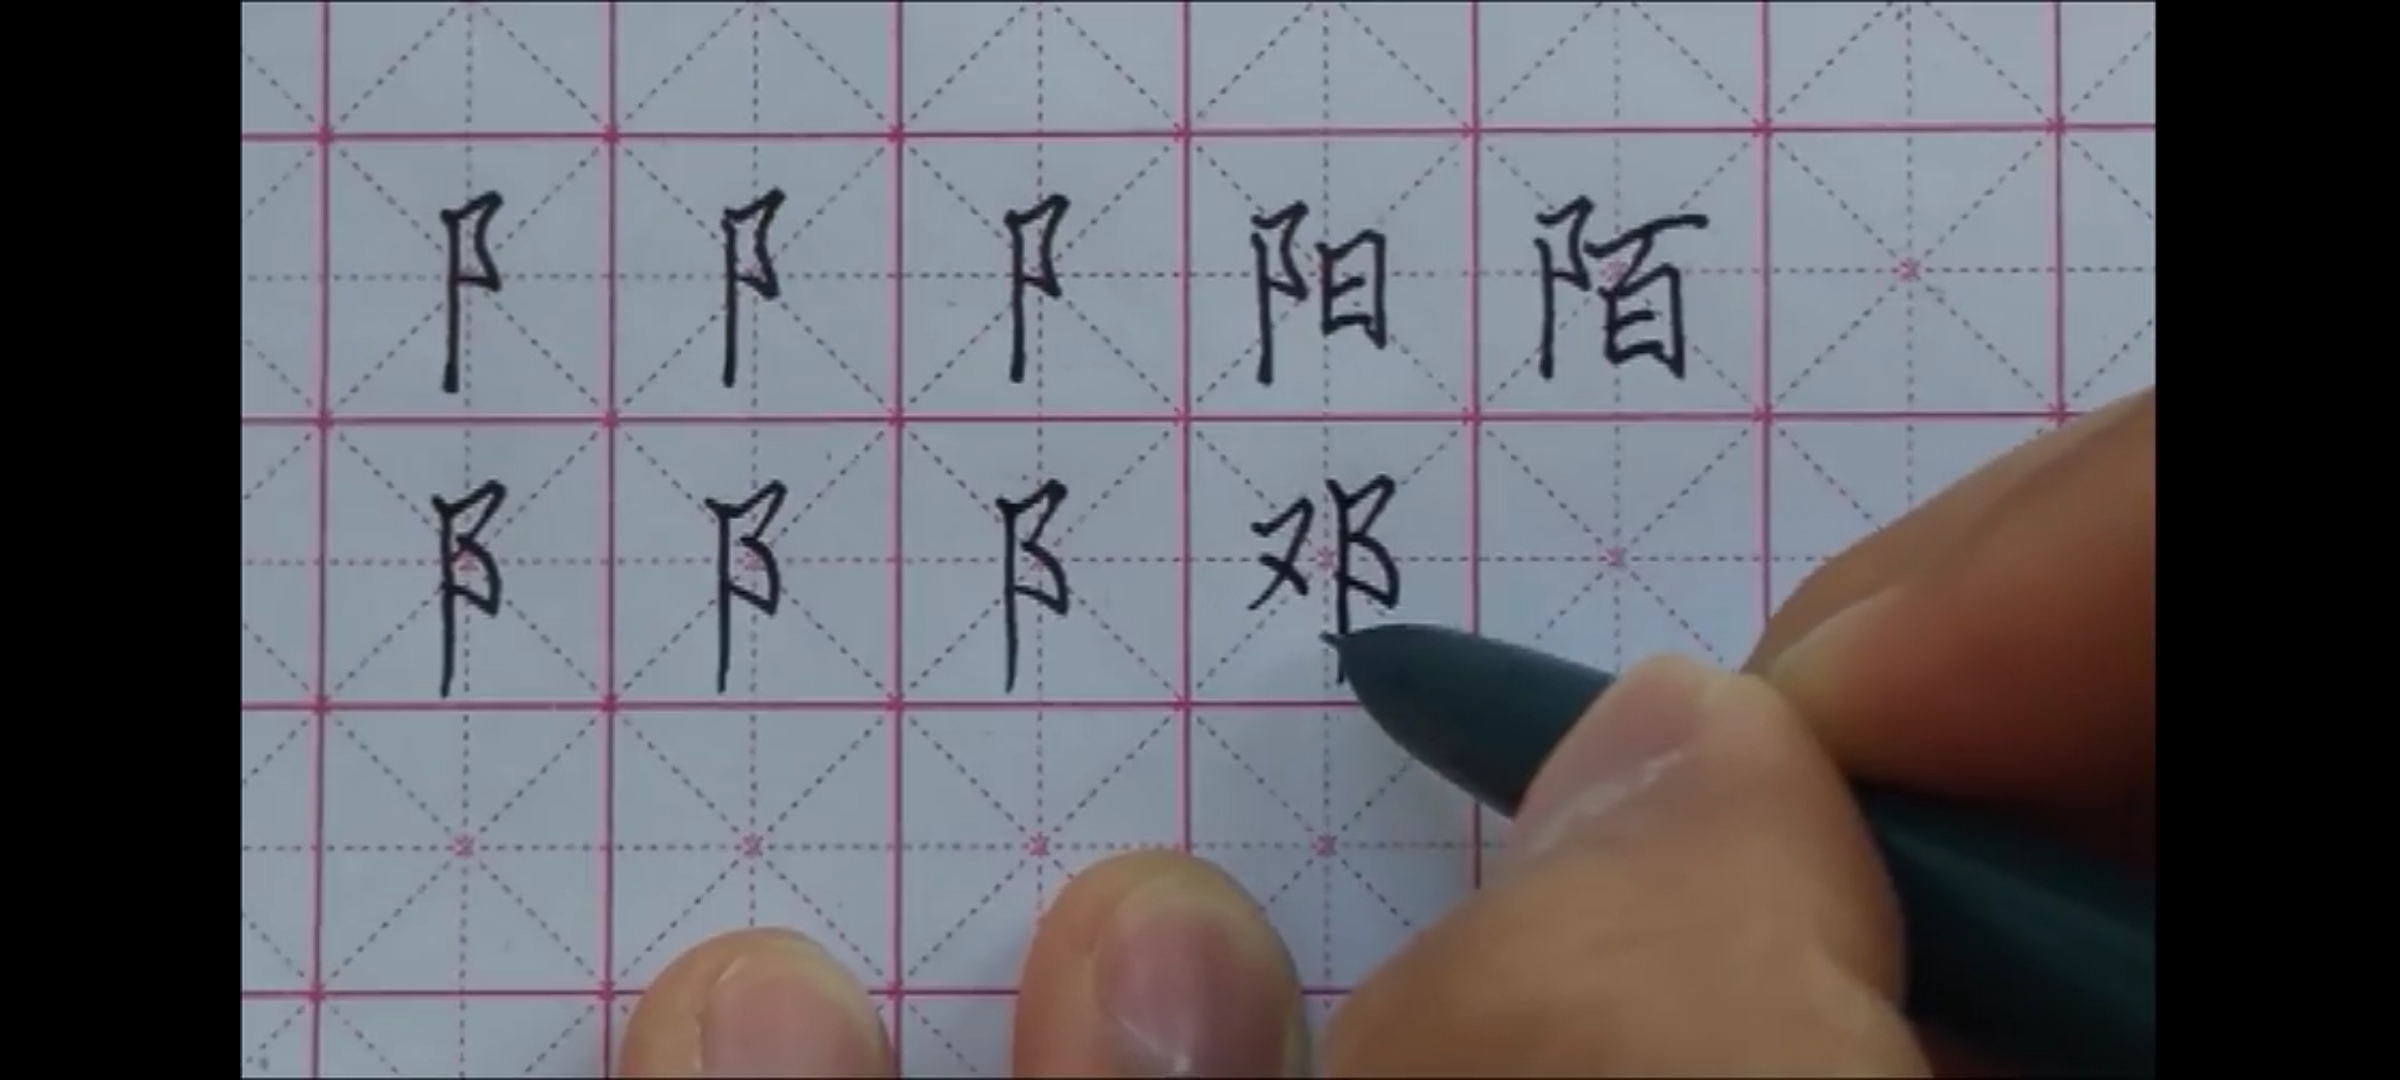 阝 阝 阝 阳 陌
阝 阝 阝 邓